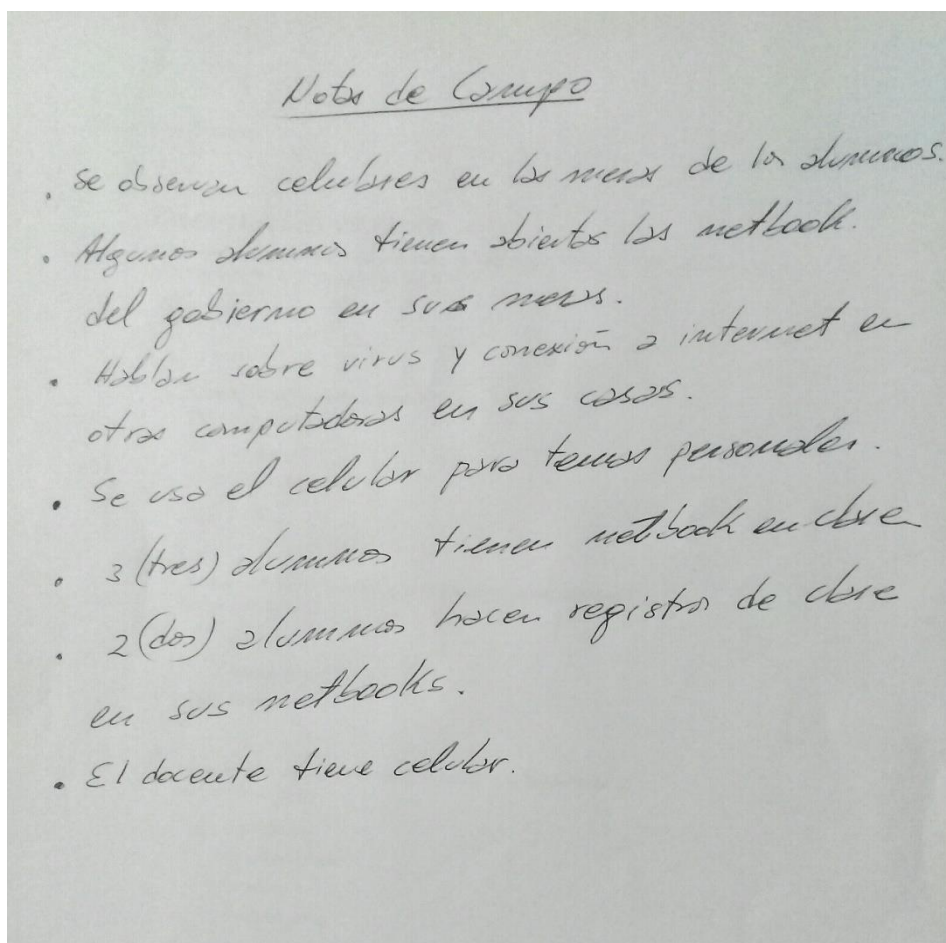 Notas de Campo
• Se observan celulares en las mesas de los alumnos.
• Algunos alumnos tienen abiertas las netbook.
del gobierno en sus mesas.
• Hablan sobre virus y conexión a internet en
otras computadoras en sus casas.
• Se usa el celular para temas personales.
• 3 (tres) alumnos tienen netbook en clase
• 2 (dos) alumnos hacen registros de clase
en sus netbooks.
• El docente tiene celular.